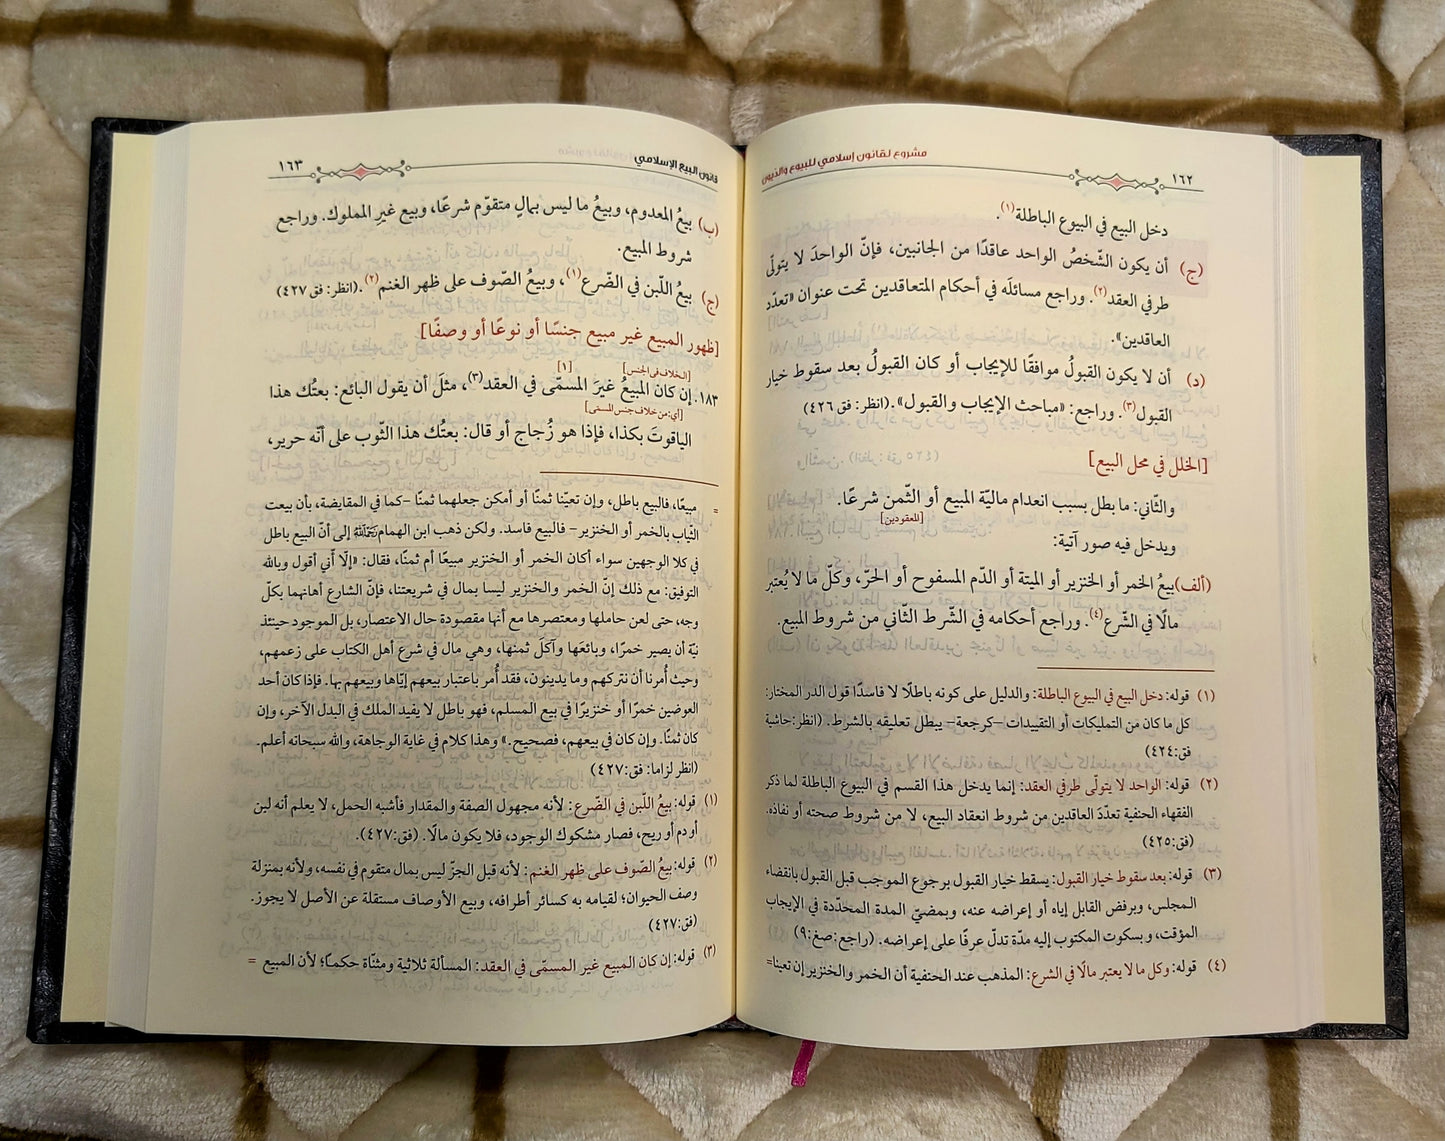 مشروع لقانون إسلامي للبيوع والديون
١٦٢
دخل البيع في البيوع الباطلة(١).
(ج) أن يكون الشّخصُ الواحد عاقدًا من الجانبين، فإنّ الواحدَ لا يتولّى
طرفي العقد(٢). وراجع مسائلَه في أحكام المتعاقدين تحت عنوان «تعدّد
العاقدين».
(د) أن لا يكون القبولُ موافقًا للإيجاب أو كان القبولُ بعد سقوط خيار
القبول(٣). وراجع: «مباحث الإيجاب والقبول».(انظر: فق ٤٢٦)
[الخلل في محل البيع]
والثّاني: ما بطل بسبب انعدام ماليّة المبيع أو الثّمن شرعًا.
[للعقودين]
ويدخل فيه صور آتية:
(ألف) بيعُ الخمر أو الخنزير أو الميتة أو الدّم المسفوح أو الحرّ، وكلّ ما لا يُعتبر
مالًا في الشّرع(٤). وراجع أحكامه في الشّرط الثّاني من شروط المبيع.
(١) قوله: دخل البيع في البيوع الباطلة: والدليل على كونه باطلًا لا فاسدًا قول الدر المختار:
كل ما كان من التمليكات أو التقييدات –كرجعة– يبطل تعليقه بالشرط. (انظر:حاشية
فق:٤٢٤)
(٢) قوله: الواحد لا يتولّى طرفي العقد: إنما يدخل هذا القسم في البيوع الباطلة لما ذكر
الفقهاء الحنفية تعدّدَ العاقدين من شروط انعقاد البيع، لا من شروط صحته أو نفاذه.
(فق:٤٢٥)
(٣) قوله: بعد سقوط خيار القبول: يسقط خيار القبول برجوع الموجب قبل القبول بانقضاء
المجلس، وبرفض القابل إياه أو إعراضه عنه، وبمضيّ المدة المحدّدة في الإيجاب
المؤقت، وبسكوت المكتوب إليه مدّة تدلّ عرفًا على إعراضه. (راجع:صغ:٩)
(٤) قوله: وكل ما لا يعتبر مالًا في الشرع: المذهب عند الحنفية أن الخمر والخنزير إن تعينا=
قانون البيع الإسلامي
١٦٣
(ب) بيعُ المعدوم، وبيعُ ما ليس بمالٍ متقوّم شرعًا، وبيع غيرِ المملوك. وراجع
شروط المبيع.
(ج) بيعُ اللّبن في الضّرع(١)، وبيعُ الصّوف على ظهر الغنم(٢).(انظر: فق ٤٢٧)
[ظهور المبيع غير مبيع جنسًا أو نوعًا أو وصفًا]
[الخلاف في الجنس] [١]
١٨٣. إن كان المبيعُ غيرَ المسمّى في العقد(٣)، مثلَ أن يقول البائع: بعتُك هذا
[أي: من خلاف جنس المسمّى]
الياقوتَ بكذا، فإذا هو زُجاج أو قال: بعتُك هذا الثّوب على أنّه حرير،
= مبيعًا، فالبيع باطل، وإن تعيّنا ثمنًا أو أمكن جعلهما ثمنًا –كما في المقايضة، بأن بيعت
الثّياب بالخمر أو الخنزير– فالبيع فاسد. ولكن ذهب ابن الهمام رحمه الله إلى أنّ البيع باطل
في كلا الوجهين سواء أكان الخمر أو الخنزير مبيعًا أم ثمنًا، فقال: «إلّا أني أقول وبالله
التوفيق: مع ذلك إنّ الخمر والخنزير ليسا بمال في شريعتنا، فإنّ الشارع أهانهما بكلّ
وجه، حتى لعن حاملها ومعتصرها مع أنها مقصودة حال الاعتصار، بل الموجود حينئذ
نيّة أن يصير خمرًا، وبائعَها وآكلَ ثمنها، وهي مال في شرع أهل الكتاب على زعمهم،
وحيث أُمرنا أن نتركهم وما يدينون، فقد أُمر باعتبار بيعهم إيّاها وبيعهم بها. فإذا كان أحد
العوضين خمرًا أو خنزيرًا في بيع المسلم، فهو باطل لا يفيد الملك في البدل الآخر، وإن
كان ثمنًا. وإن كان في بيعهم، فصحيح.» وهذا كلام في غاية الوجاهة، والله سبحانه أعلم.
(انظر لزاما: فق:٤٢٧)
(١) قوله: بيعُ اللّبن في الضّرع: لأنه مجهول الصفة والمقدار فأشبه الحمل، لا يعلم أنه لبن
أو دم أو ريح، فصار مشكوك الوجود، فلا يكون مالًا. (فق:٤٢٧).
(٢) قوله: بيعُ الصّوف على ظهر الغنم: لأنه قبل الجزّ ليس بمال متقوم في نفسه، ولأنه بمنزلة
وصف الحيوان؛ لقيامه به كسائر أطرافه، وبيع الأوصاف مستقلة عن الأصل لا يجوز.
(فق:٤٢٧)
(٣) قوله: إن كان المبيع غير المسمّى في العقد: المسألة ثلاثية ومثنّاة حكمًا؛ لأن المبيع =